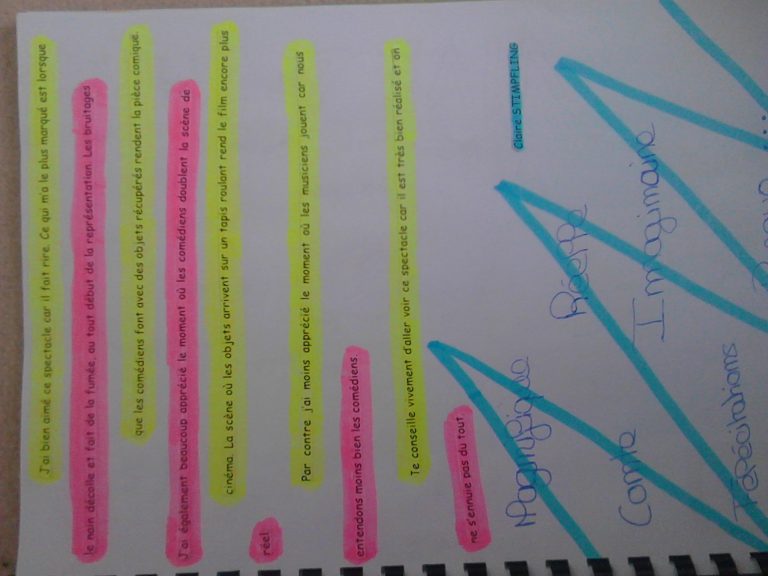 J'ai bien aimé ce spectacle car il fait rire. Ce qui m'a le plus marqué est lorsque
le nain décolle et fait de la fumée, au tout début de la représentation. Les bruitages
que les comédiens font avec des objets récupérés rendent la pièce comique.
J'ai également beaucoup apprécié le moment où les comédiens doublent la scène de
cinéma. La scène où les objets arrivent sur un tapis roulant rend le film encore plus
réel.
Par contre j'ai moins apprécié le moment où les musiciens jouent car nous
entendons moins bien les comédiens.
Je conseille vivement d'aller voir ce spectacle car il est très bien réalisé et on
ne s'ennuie pas du tout.
Claire STIMPFLING
Magnifique
Réelle
Conte
Imaginaire
...